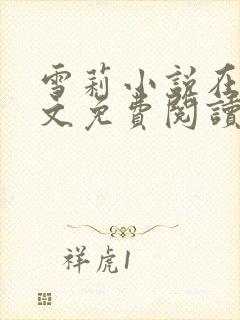 雪莉小説在
文免費閱讀
祥虎1